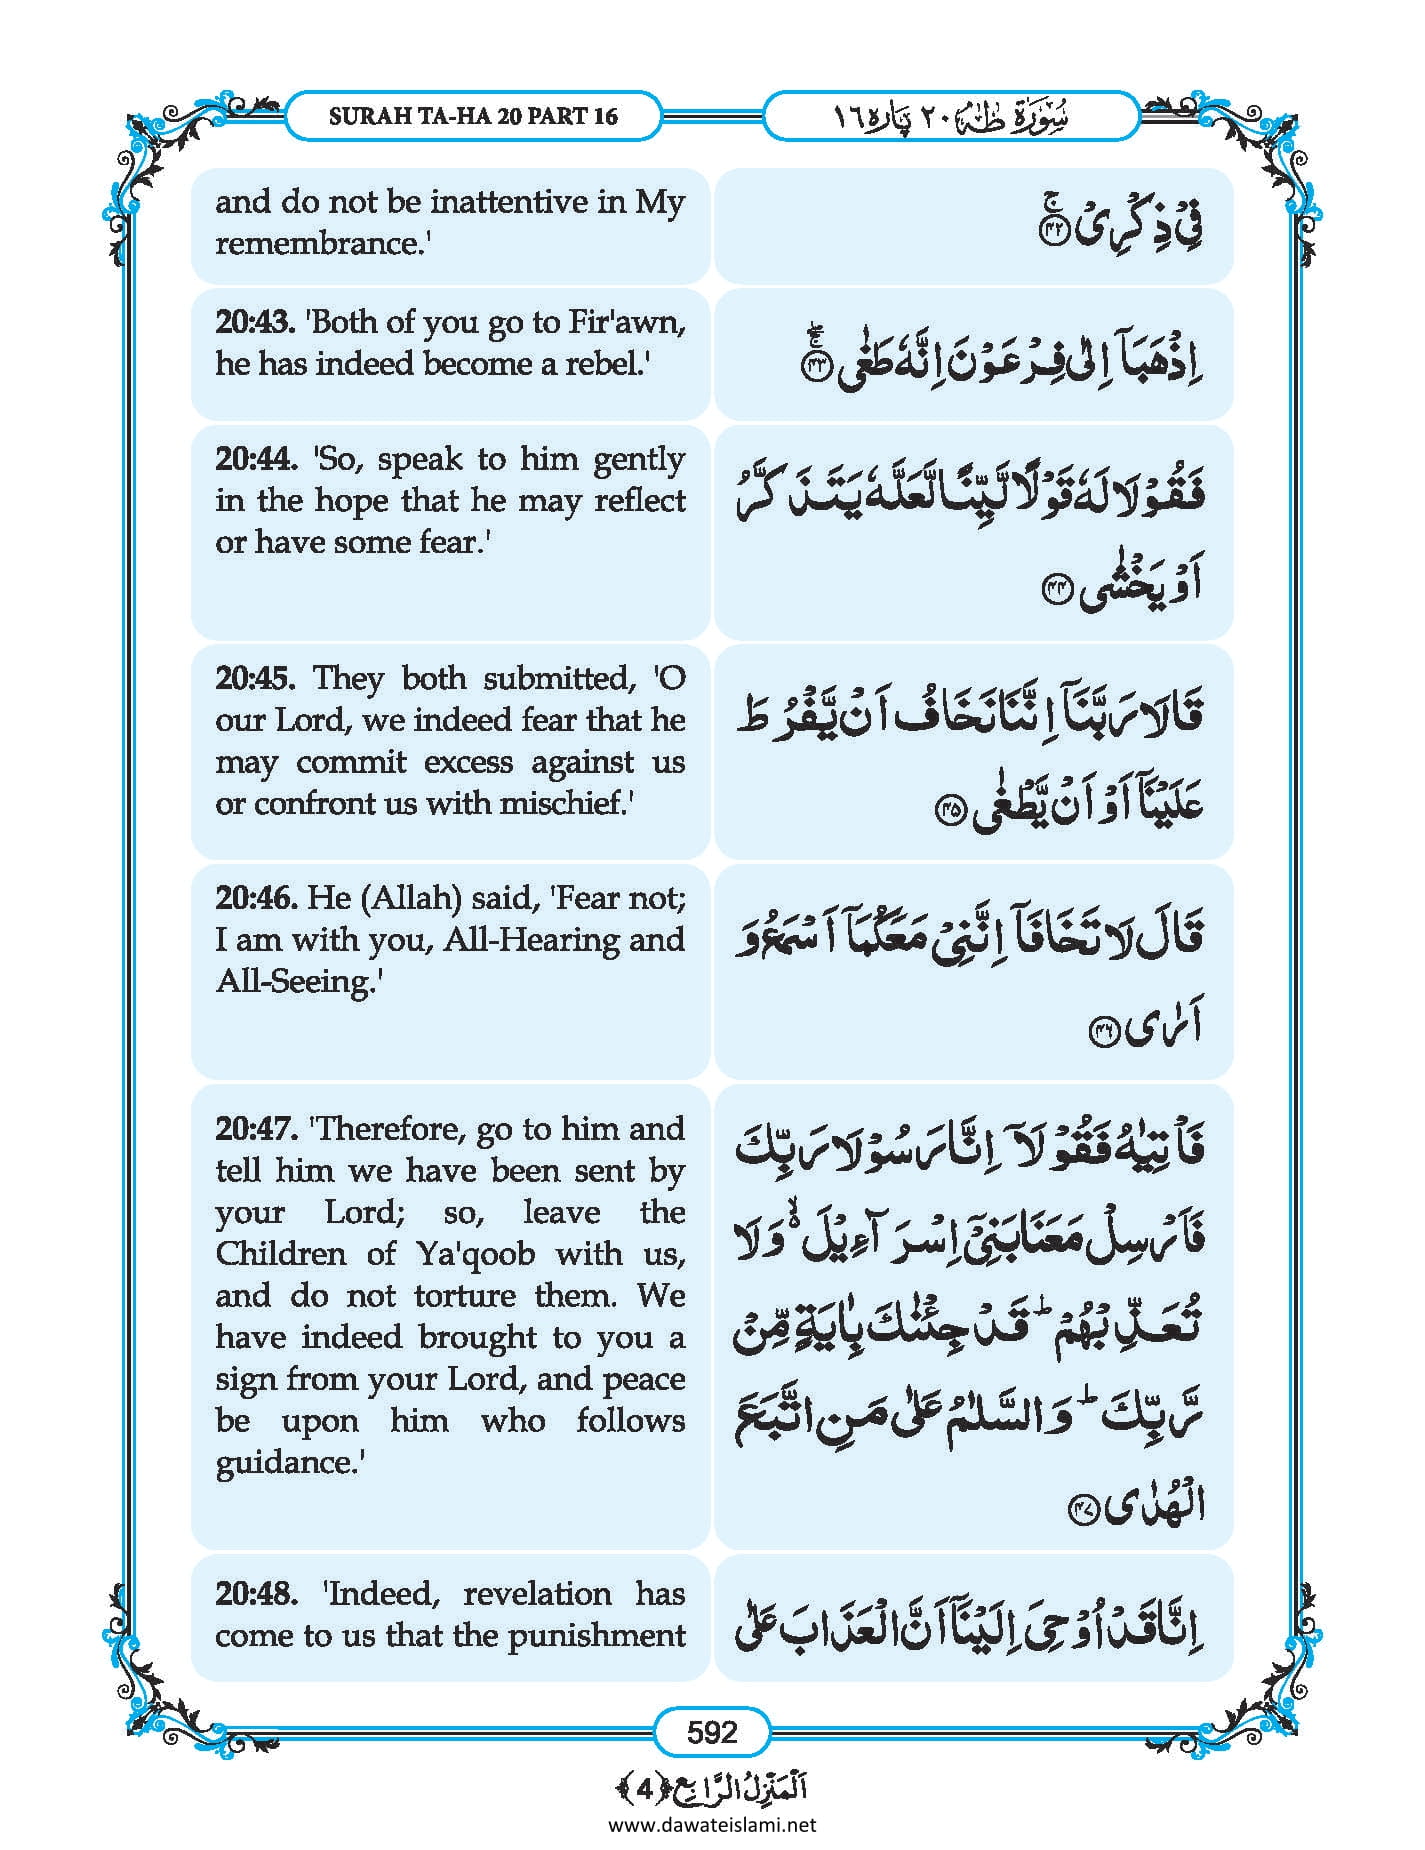 SURAH TA-HA 20 PART 16
سُوْرَۃُ طٰهٰ ٢٠ پاره ١٦
and do not be inattentive in My
remembrance.'
فِیْ ذِكْرِیْ ۚ﴿۴۲﴾
20:43. 'Both of you go to Fir'awn,
he has indeed become a rebel.'
اِذْهَبَاۤ اِلٰى فِرْعَوْنَ اِنَّهٗ طَغٰى ﴿۴۳﴾ۚۖ
20:44. 'So, speak to him gently
in the hope that he may reflect
or have some fear.'
فَقُوْلَا لَهٗ قَوْلًا لَّیِّنًا لَّعَلَّهٗ یَتَذَكَّرُ
اَوْ یَخْشٰى ﴿۴۴﴾
20:45. They both submitted, 'O
our Lord, we indeed fear that he
may commit excess against us
or confront us with mischief.'
قَالَا رَبَّنَاۤ اِنَّنَا نَخَافُ اَنْ یَّفْرُطَ
عَلَیْنَاۤ اَوْ اَنْ یَّطْغٰى ﴿۴۵﴾
20:46. He (Allah) said, 'Fear not;
I am with you, All-Hearing and
All-Seeing.'
قَالَ لَا تَخَافَاۤ اِنَّنِیْ مَعَكُمَاۤ اَسْمَعُ وَ
اَرٰى ﴿۴۶﴾
20:47. 'Therefore, go to him and
tell him we have been sent by
your Lord; so, leave the
Children of Ya'qoob with us,
and do not torture them. We
have indeed brought to you a
sign from your Lord, and peace
be upon him who follows
guidance.'
فَاْتِیٰهُ فَقُوْلَاۤ اِنَّا رَسُوْلَا رَبِّكَ
فَاَرْسِلْ مَعَنَا بَنِیْۤ اِسْرَآءِیْلَ ۙ۬ وَ لَا
تُعَذِّبْهُمْ ؕ قَدْ جِئْنٰكَ بِاٰیَةٍ مِّنْ
رَّبِّكَ ؕ وَ السَّلٰمُ عَلٰى مَنِ اتَّبَعَ
الْهُدٰى ﴿۴۷﴾
20:48. 'Indeed, revelation has
come to us that the punishment
اِنَّا قَدْ اُوْحِیَ اِلَیْنَاۤ اَنَّ الْعَذَابَ عَلٰى
592
اَلْمَنْزِلُ الرَّابِع ﴿4﴾
www.dawateislami.net